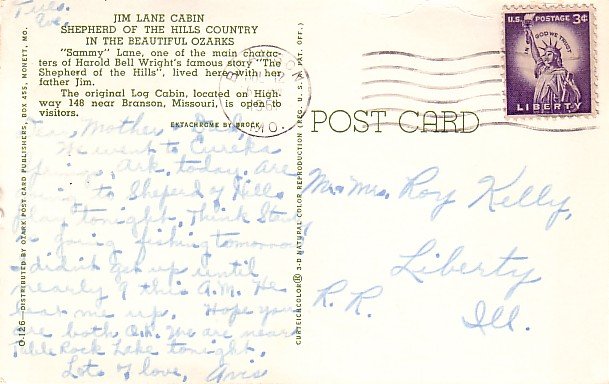 Tues.
Eve.
JIM LANE CABIN
SHEPHERD OF THE HILLS COUNTRY
IN THE BEAUTIFUL OZARKS
"Sammy" Lane, one of the main charac-
ters of Harold Bell Wright's famous story "The
Shepherd of the Hills", lived here with her
father Jim.
The original Log Cabin, located on High-
way 148 near Branson, Missouri, is open to
visitors.
EKTACHROME BY BROCK
Mother & Dad,
We went to Eureka
Ark. today. Are
to Sheperd of Hills
tonight. Think
going fishing tomorrow
didn't get up until
nearly 9 this A.M. He
beat me up. Hope you
are both O.K. We are near
Table Rock Lake tonight.
Lots of love, Avis
O-126—DISTRIBUTED BY OZARK POST CARD PUBLISHERS, BOX 455, MONETT, MO.
CURTEICHCOLOR® 3-D NATURAL COLOR REPRODUCTION (REG. U. S. A. PAT. OFF.)
POST CARD
MO.
U.S. POSTAGE 3¢
IN GOD WE TRUST
LIBERTY
Mr. Mrs. Roy Kelly,
Liberty
R. R.
Ill.